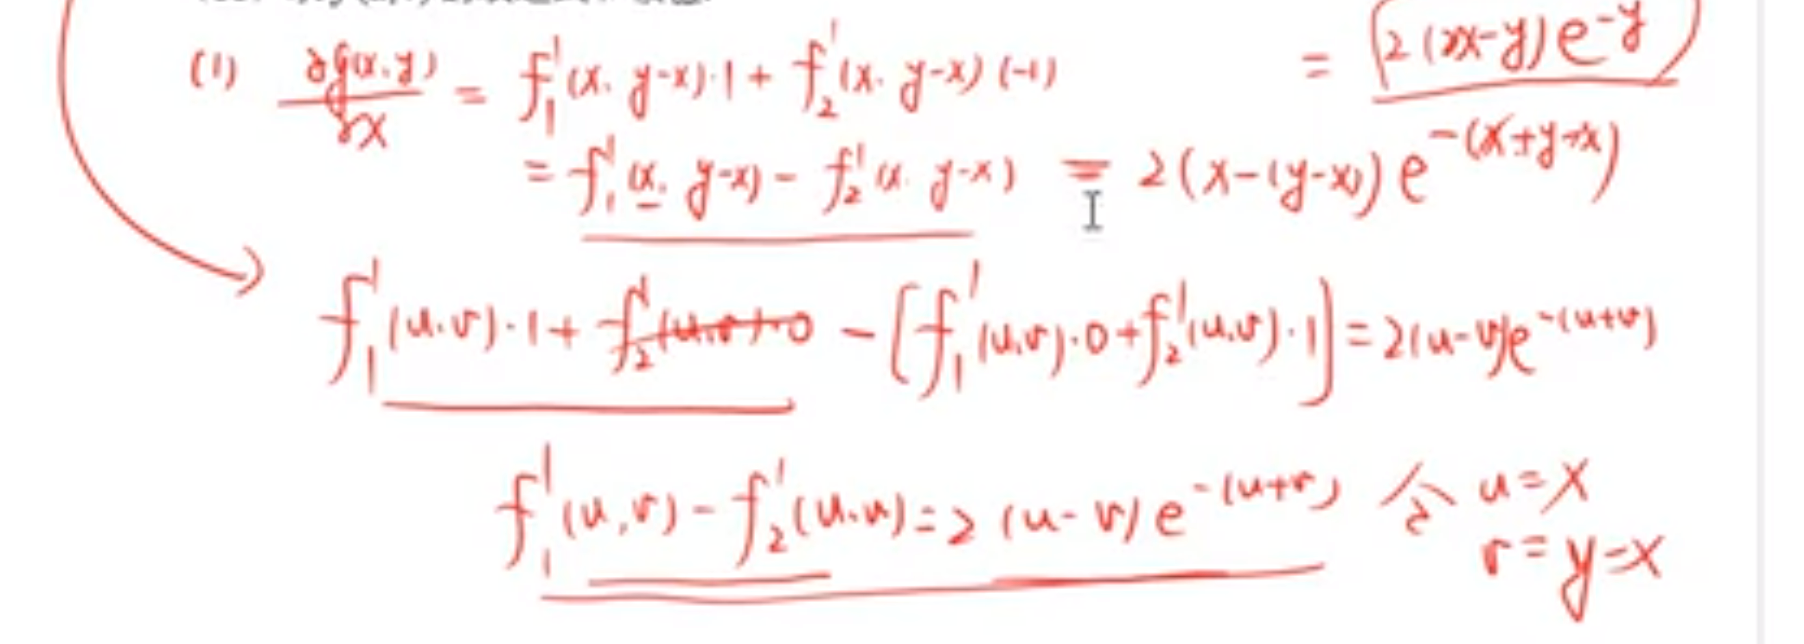 (1) ∂g(x,y)/∂x = f₁'(x, y-x)·1 + f₂'(x, y-x)(-1) = 2(2x-y)e^{-y}
= f₁'(x, y-x) - f₂'(x, y-x) = 2(x-(y-x))e^{-(x+y-x)}
f₁'(u,v)·1 + f₂'(u,v)·0 - [f₁'(u,v)·0 + f₂'(u,v)·1] = 2(u-v)e^{-(u+v)}
f₁'(u,v) - f₂'(u,v) = 2(u-v)e^{-(u+v)} 令 u=x
v=y-x